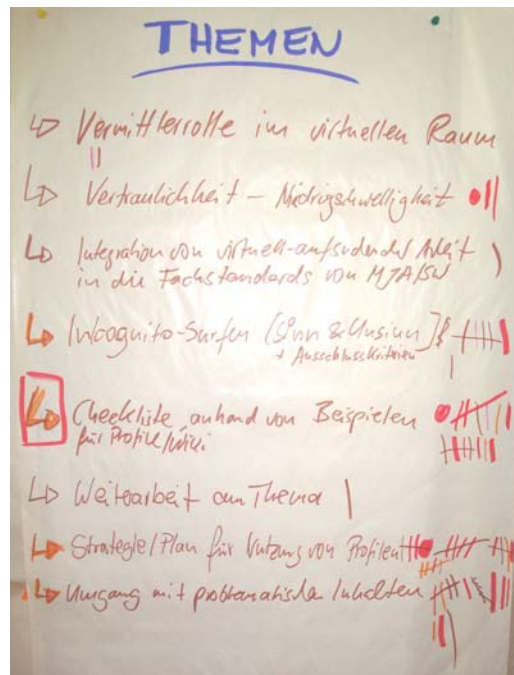 THEMEN
Vermittlerrolle im virtuellen Raum
Vertraulichkeit – Niedrigschwelligkeit
Integration von virtuell-aufsuchender Arbeit
in die Fachstandards von MJA/SW
Incognito-Surfen (Sinn & Unsinn)
+ Ausschlusskriterien
Checkliste anhand von Beispielen
für Profile/
Weiterarbeit am Thema
Strategie/Plan für Nutzung von Profilen
Umgang mit problematischen Inhalten